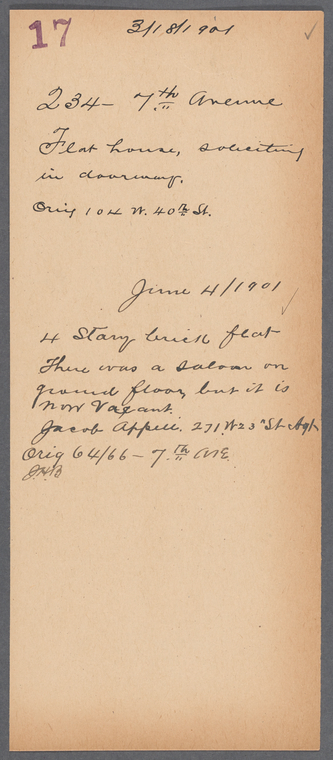 17
3/18/1901
234 - 7th Avenue
Flat house, soliciting
in doorway.
Orig 104 W. 40th St.
June 4/1901
4 Story brick flat
There was a saloon on
ground floor, but it is
now Vacant.
Jacob Appell. 271 W 23d St Agt
Orig 64/66 - 7th Ave.